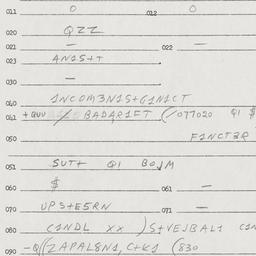 011 0 012 0
020 QZZ
021 — 022 —
023 ANIS+T
030 —
040 INCOM3NIS+GINICT
041 +QUU BADARIFT (/077020 QI $
050 FINCT3R
051 SUT+ QI BOJM
060 $ 061 —
070 UPS+E5RN 071 —
080 CINDL XX )S+VEJBALI CIN
090 -Q((ZAPAL8NI, C+KI (830